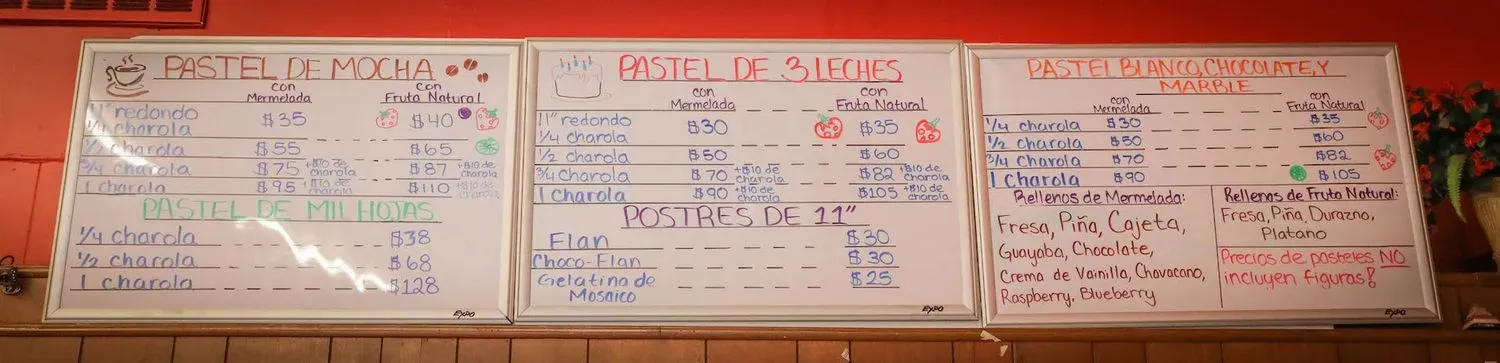 PASTEL DE MOCHA
con Mermelada
con Fruta Natural
11" redondo
1/4 charola $35 $40
1/2 charola $55 $65
3/4 charola $75 +$10 de charola $87 +$10 de charola
1 charola $95 +$10 de charola $110 +$10 de charola
PASTEL DE MIL HOJAS
1/4 charola $38
1/2 charola $68
1 charola $128
EXPO
PASTEL DE 3 LECHES
con Mermelada
con Fruta Natural
11" redondo
1/4 charola $30 $35
1/2 charola $50 $60
3/4 charola $70 +$10 de charola $82 +$10 de charola
1 charola $90 +$10 de charola $105 +$10 de charola
POSTRES DE 11"
Flan $30
Choco-Flan $30
Gelatina de Mosaico $25
EXPO
PASTEL BLANCO, CHOCOLATE, Y
MARBLE
con Mermelada
con Fruta Natural
1/4 charola $30 $35
1/2 charola $50 $60
3/4 charola $70 $82
1 charola $90 $105
Rellenos de Mermelada:
Fresa, Piña, Cajeta,
Guayaba, Chocolate,
Crema de Vainilla, Chavacano,
Raspberry, Blueberry
Rellenos de Fruta Natural:
Fresa, Piña, Durazno,
Platano
Precios de pasteles NO
incluyen figuras!
EXPO